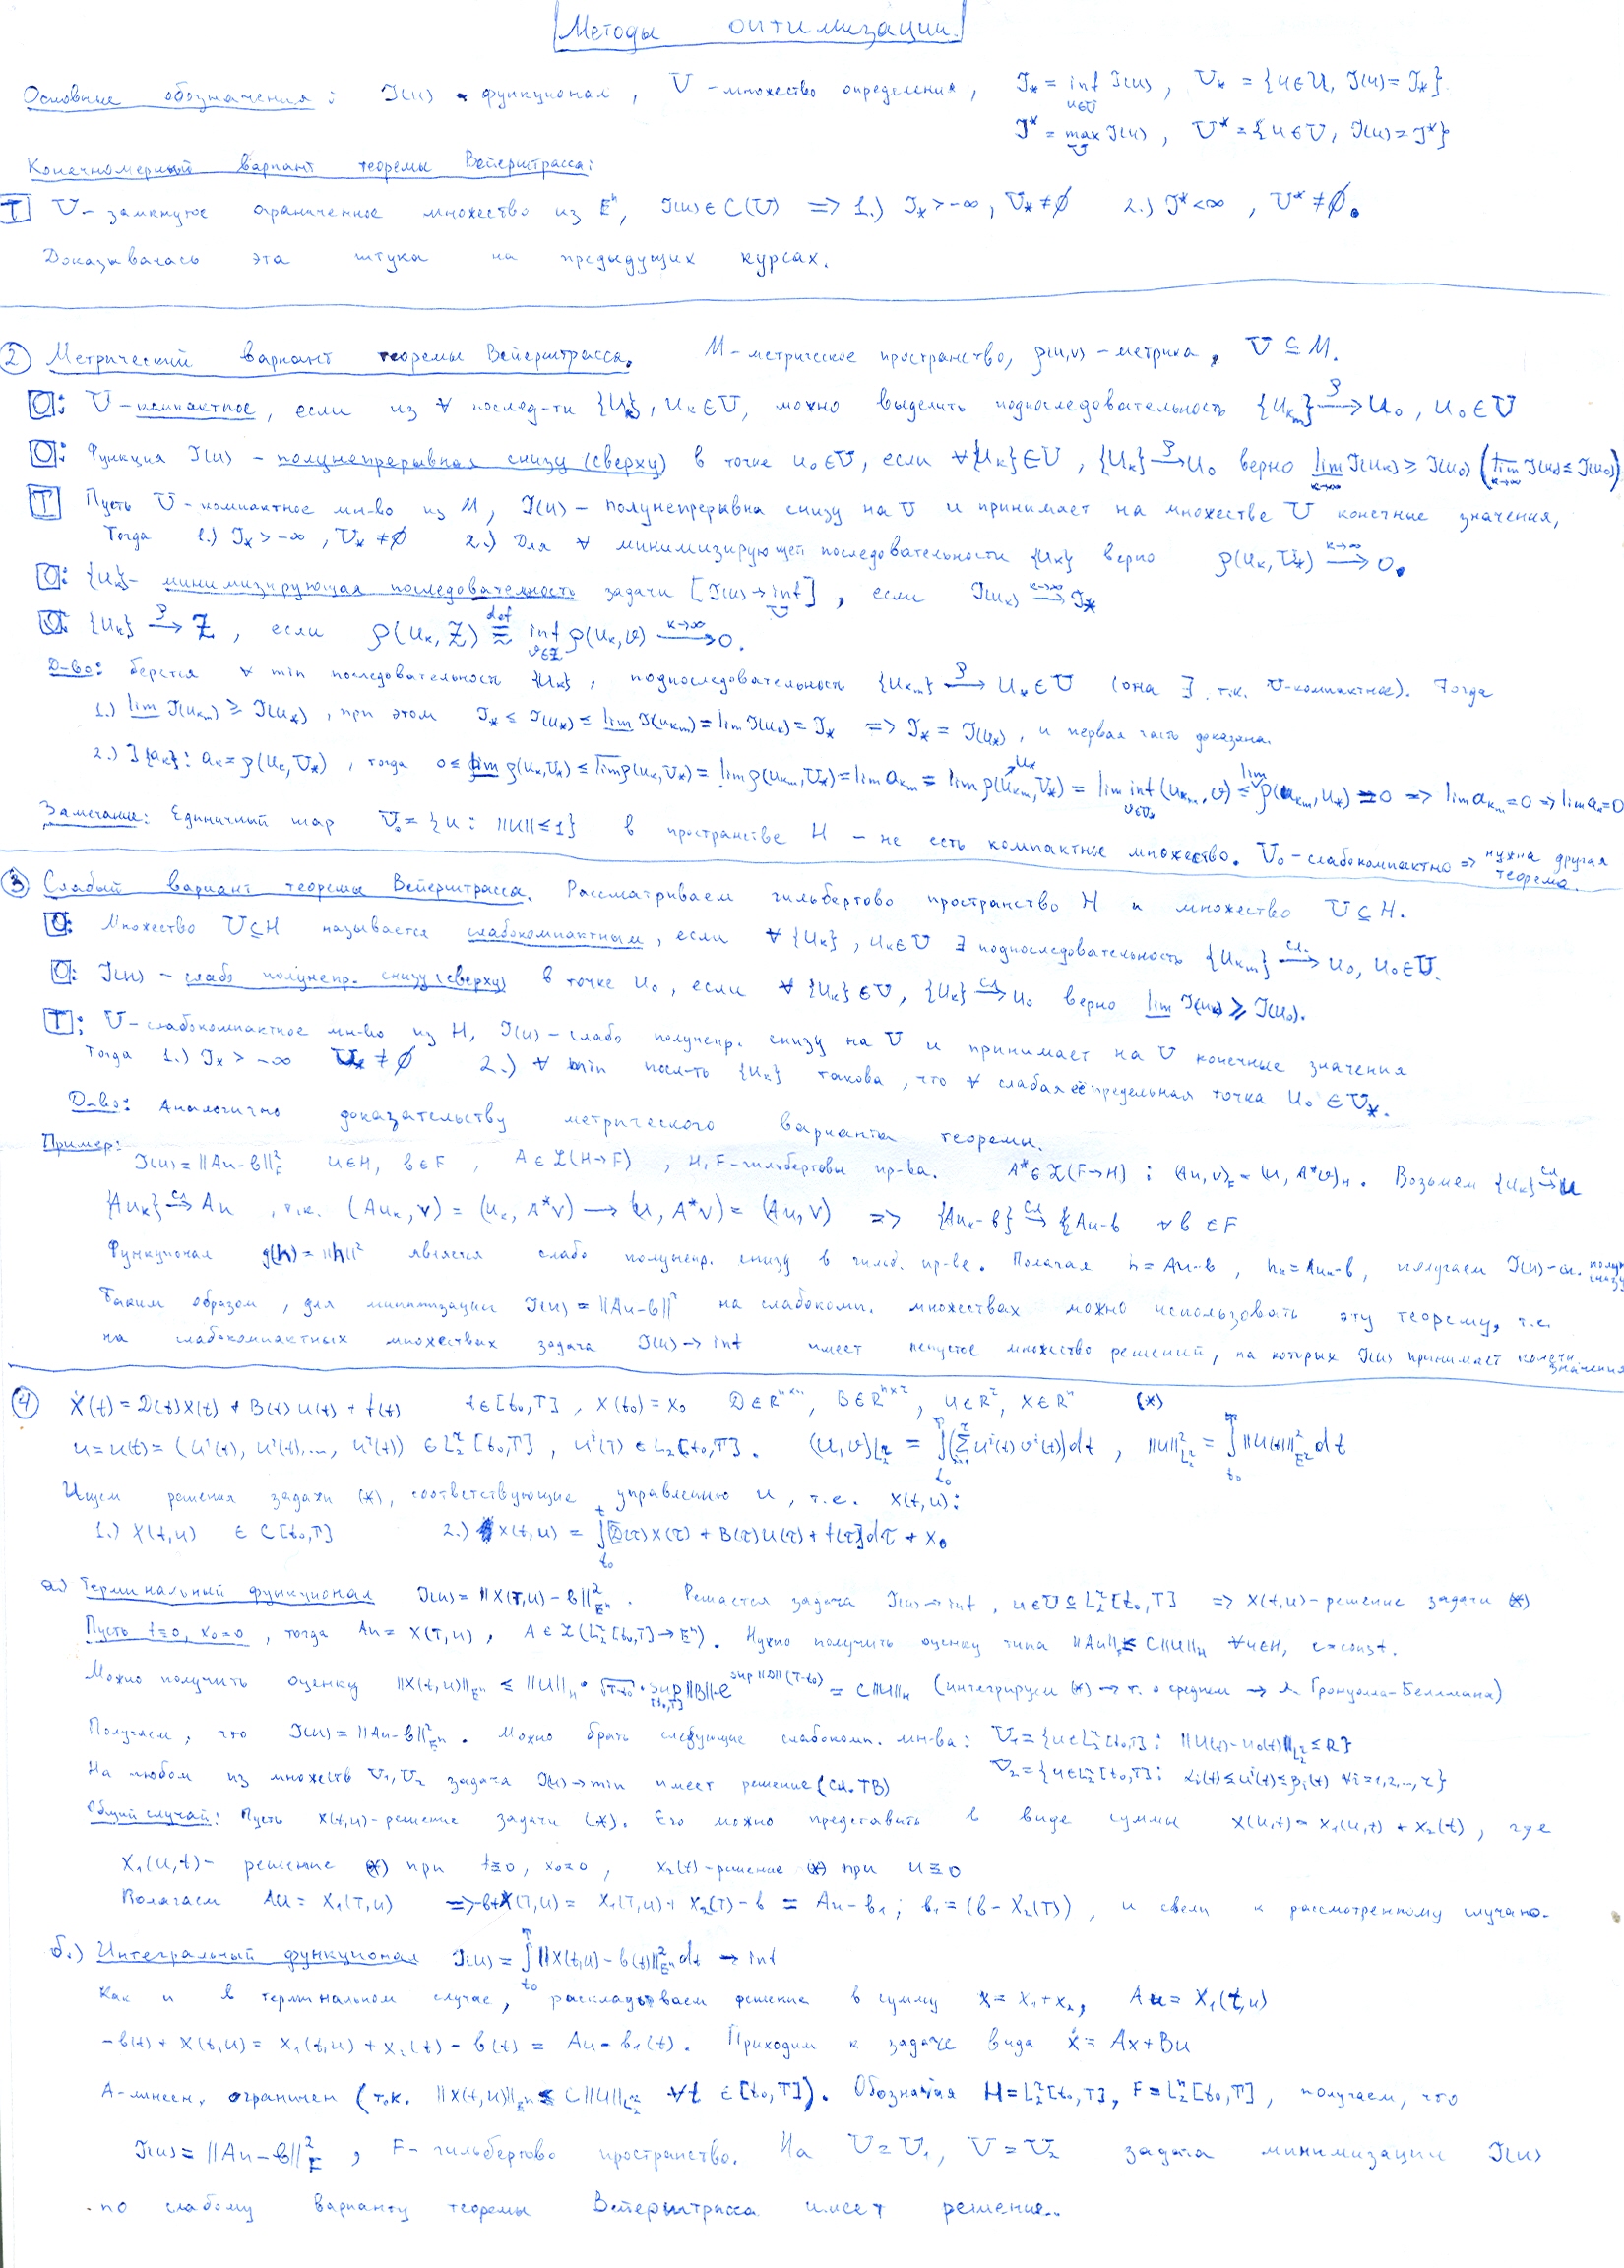 Методы оптимизации.
Основные обозначения: J(u) - функционал, U - множество определения, J_* = inf_{u∈U} J(u), U_* = {u∈U, J(u)=J_*}
J^* = max_U J(u), U^* = {u∈U, J(u)=J^*}
Конечномерный вариант теоремы Вейерштрасса:
[T] U - замкнутое ограниченное множество из E^n, J(u)∈C(U) => 1.) J_* > -∞, U_* ≠ ∅ 2.) J^* < ∞, U^* ≠ ∅.
Доказывалась эта штука на предыдущих курсах.
② Метрический вариант теоремы Вейерштрасса. M - метрическое пространство, ρ(u,v) - метрика, U ⊆ M.
[O]: U - компактное, если из ∀ послед-ти {u_k}, u_k∈U, можно выделить подпоследовательность {u_{k_m}} →^ρ u_0, u_0∈U
[O]: Функция J(u) - полунепрерывная снизу (сверху) в точке u_0∈U, если ∀{u_k}∈U, {u_k} →^ρ u_0 верно \underline{lim}_{k→∞} J(u_k) ≥ J(u_0) (\overline{lim}_{k→∞} J(u_k) ≤ J(u_0))
[T] Пусть U - компактное мн-во из M, J(u) - полунепрерывна снизу на U и принимает на множестве U конечные значения,
Тогда 1.) J_* > -∞, U_* ≠ ∅ 2.) Для ∀ минимизирующей последовательности {u_k} верно ρ(u_k, U_*) →^{k→∞} 0.
[O]: {u_k} - минимизирующая последовательность задачи [J(u) → inf_U], если J(u_k) →^{k→∞} J_*
[O]: {u_k} →^ρ Z, если ρ(u_k, Z) ≡^{def} inf_{v∈Z} ρ(u_k, v) →^{k→∞} 0.
Д-во: берется ∀ min последовательность {u_k}, подпоследовательность {u_{k_m}} →^ρ u_*∈U (она ∃, т.к. U-компактное). Тогда
1.) \underline{lim} J(u_{k_m}) ≥ J(u_*), при этом J_* ≤ J(u_*) ≤ \underline{lim} J(u_{k_m}) = lim J(u_k) = J_* => J_* = J(u_*), и первая часть доказана.
2.) ∃{a_k}: a_k = ρ(u_k, U_*), тогда 0 ≤ \underline{lim} ρ(u_k, U_*) ≤ \overline{lim} ρ(u_k, U_*) = lim ρ(u_{k_m}, U_*) = lim a_{k_m} = lim ρ(u_{k_m}, U_*) = lim inf_{v∈U_*} (u_{k_m}, v) ≤ lim ρ(u_{k_m}, u_*) = 0 => lim a_{k_m} = 0 => lim a_k = 0
Замечание: Единичный шар U_0 = {u: ||u|| ≤ 1} в пространстве H - не есть компактное множество. U_0 - слабокомпактно => нужна другая теорема.
③ Слабый вариант теоремы Вейерштрасса. Рассматриваем гильбертово пространство H и множество U ⊆ H.
[O]: Множество U⊆H называется слабокомпактным, если ∀{u_k}, u_k∈U ∃ подпоследовательность {u_{k_m}} →^{сл.} u_0, u_0∈U.
[O]: J(u) - слабо полунепр. снизу (сверху) в точке u_0, если ∀{u_k}∈U, {u_k} →^{сл} u_0 верно \underline{lim} J(u_k) ≥ J(u_0).
[T]: U - слабокомпактное мн-во из H, J(u) - слабо полунепр. снизу на U и принимает на U конечные значения
Тогда 1.) J_* > -∞ U_* ≠ ∅ 2.) ∀ min посл-ть {u_k} такова, что ∀ слабая её предельная точка u_0∈U_*.
Д-во: Аналогично доказательству метрического варианта теоремы.
Пример: J(u) = ||Au-b||²_F u∈H, b∈F, A∈L(H→F), H, F - гильбертовы пр-ва. A*∈L(F→H): (Au,v)_F = (u,A*v)_H. Возьмем {u_k} →^{сл} u
{Au_k} →^{сл} Au, т.к. (Au_k, v) = (u_k, A*v) → (u, A*v) = (Au, v) => {Au_k - b} →^{сл} {Au-b ∀b∈F
Функционал g(h) = ||h||² является слабо полунепр. снизу в гильб. пр-ве. Полагая h = Au-b, h_k = Au_k-b, получаем J(u) - сл. полун. снизу
Таким образом, для минимизации J(u) = ||Au-b||² на слабокомп. множествах можно использовать эту теорему, т.е.
на слабокомпактных множествах задача J(u) → inf имеет непустое множество решений, на которых J(u) принимает конечн. значения
④ ẋ(t) = D(t)x(t) + B(t)u(t) + f(t) t∈[t_0,T], x(t_0) = x_0 D∈R^{n×n}, B∈R^{n×r}, u∈R^r, x∈R^n (*)
u = u(t) = (u¹(t), u²(t),..., u^r(t)) ∈ L_2^r[t_0,T], u^i(t) ∈ L_2[t_0,T]. (u,v)_{L_2^r} = ∫_{t_0}^T (Σ_{i=1}^r u^i(t)v^i(t))dt, ||u||²_{L_2^r} = ∫_{t_0}^T ||u(t)||²_{E^r} dt
Ищем решения задачи (*), соответствующие управлению u, т.е. x(t,u):
1.) x(t,u) ∈ C[t_0,T] 2.) x(t,u) = ∫_{t_0}^t [D(τ)x(τ) + B(τ)u(τ) + f(τ)]dτ + x_0
а.) Терминальный функционал J(u) = ||x(T,u) - b||²_{E^n}. Решается задача J(u) → inf, u∈U⊆L_2^r[t_0,T] => x(t,u) - решение задачи (*)
Пусть f≡0, x_0=0, тогда Au = x(T,u), A∈L(L_2^r[t_0,T]→E^n). Нужно получить оценку типа ||Au||_F ≤ C||u||_H ∀u∈H, c=const.
Можно получить оценку ||x(t,u)||_{E^n} ≤ ||u||_H · √(T-t_0) · sup_{[t_0,T]} ||B|| · e^{sup||D||(T-t_0)} = C||u||_H (интегрируем (*) → т. о среднем → л. Гронуолла-Беллмана)
Получаем, что J(u) = ||Au-b||²_{E^n}. Можно брать следующие слабокомп. мн-ва: U_1 = {u∈L_2^r[t_0,T]: ||u(t)-u_0(t)||_{L_2^r} ≤ R}
На любом из множеств U_1, U_2 задача J(u)→min имеет решение (сл. ТВ) U_2 = {u∈L_2^r[t_0,T]: α_i(t) ≤ u^i(t) ≤ β_i(t) ∀i=1,2,..,r}
Общий случай: Пусть x(t,u) - решение задачи (*). Его можно представить в виде суммы x(u,t) = x_1(u,t) + x_2(t), где
x_1(u,t) - решение (*) при f≡0, x_0=0, x_2(t) - решение (*) при u≡0
Полагаем Au = x_1(T,u) => -b+x(T,u) = x_1(T,u) + x_2(T) - b = Au - b_1; b_1 = (b - x_2(T)), и свели к рассмотренному случаю.
б.) Интегральный функционал J(u) = ∫_{t_0}^T ||x(t,u) - b(t)||²_{E^n} dt → inf
Как и в терминальном случае, раскладываем решение в сумму x = x_1+x_2, Au = x_1(t,u)
-b(t) + x(t,u) = x_1(t,u) + x_2(t) - b(t) = Au - b_1(t). Приходим к задаче вида ẋ = Ax+Bu
A - линеен, ограничен (т.к. ||x(t,u)||_{E^n} ≤ C||u||_{L_2^r} ∀t∈[t_0,T]). Обозначая H = L_2^r[t_0,T], F = L_2^n[t_0,T], получаем, что
J(u) = ||Au-b||²_F, F - гильбертово пространство. На U=U_1, U=U_2 задача минимизации J(u)
по слабому варианту теоремы Вейерштрасса имеет решение..